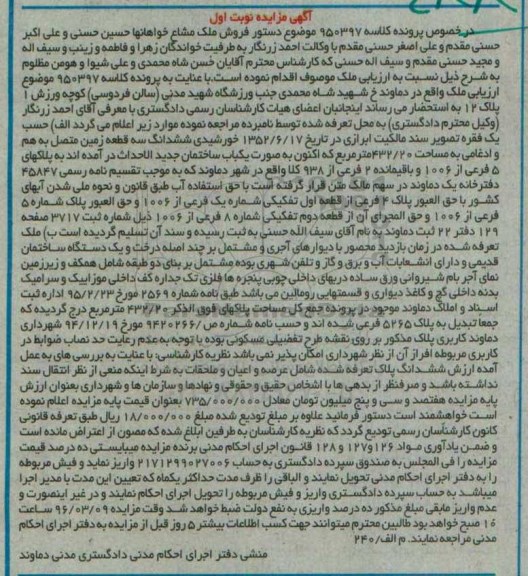 آگهی مزایده نوبت اول
در خصوص پرونده کلاسه ۹۵۰۳۹۷ موضوع دستور فروش ملک مشاع خواهانها حسین حسنی و علی اکبر
حسنی مقدم و علی اصغر حسنی مقدم با وکالت احمد زرنگار به طرفیت خواندگان زهرا و فاطمه و زینب و سیف اله
و مجید حسنی مقدم و سیف اله حسنی که کارشناس محترم آقایان حسن شاه محمدی و علی شیوا و هومن مظلوم
به شرح ذیل نسبت به ارزیابی ملک موصوف اقدام نموده است.با عنایت به پرونده کلاسه ۹۵۰۳۹۷ موضوع
ارزیابی ملک واقع در دماوند خ شهید شاه محمدی جنب ورزشگاه شهید مدنی (سالن فردوسی) کوچه ورزش ۱
پلاک ۱۲ به استحضار می رساند اینجانبان اعضای هیات کارشناسان رسمی دادگستری با معرفی آقای احمد زرنگار
(وکیل محترم دادگستری) به محل تعرفه شده توسط نامبرده مراجعه نموده موارد زیر اعلام می گردد الف) حسب
یک فقره تصویر سند مالکیت ابرازی در تاریخ ۱۳۵۲/۶/۱۷ خورشیدی ششدانگ سه قطعه زمین متصل به هم
و ادغامی به مساحت ۴۳۲/۲۰مترمربع که اکنون به صورت یکباب ساختمان جدید الاحداث در آمده اند به پلاکهای
۵ فرعی از ۱۰۰۶ و باقیمانده ۲ فرعی از ۹۳۸ کلا واقع در شهر دماوند که به موجب تقسیم نامه رسمی ۴۵۸۴۷
دفترخانه یک دماوند در سهم مالک متن قرار گرفته است با حق استفاده آب طبق قانون و نحوه ملی شدن آبهای
کشور با حق العبور پلاک ۴ فرعی از قطعه اول تفکیکی شماره یک فرعی از ۱۰۰۶ و حق العبور پلاک شماره ۵
فرعی از ۱۰۰۶ و حق المجرای آن از قطعه دوم تفکیکی شماره ۸ فرعی از ۱۰۰۶ ذیل شماره ثبت ۳۷۱۷ صفحه
۱۲۹ دفتر ۲۲ ثبت دماوند به نام آقای سیف الله حسنی به ثبت رسیده و سند آن تسلیم گردیده است ب) ملک
تعرفه شده در زمان بازدید محصور با دیوارهای آجری و مشتمل بر چند اصله درخت و یک دستگاه ساختمان
قدیمی و دارای انشعابات آب و برق و گاز و تلفن شهری بوده مشتمل بر بنای دو طبقه شامل همکف و زیرزمین
نمای آجر بام شیروانی ورق ساده دربهای داخلی چوبی پنجره ها فلزی تک جداره کف داخلی موزاییک و سرامیک
بدنه داخلی گچ و کاغذ دیواری و قسمتهایی رومالین می باشد طبق نامه شماره ۲۵۶۹ مورخ ۹۵/۲/۲۳ اداره ثبت
اسناد و املاک دماوند موجود در پرونده جمع کل مساحت پلاکهای فوق الذکر ۴۳۲/۲۰ مترمربع درج گردیده که
جمعا تبدیل به پلاک ۵۲۶۵ فرعی شده اند و حسب نامه شماره ص/۹۴۲۰۲۶۶ مورخ ۹۴/۱۲/۱۹ شهرداری
دماوند کاربری پلاک مذکور بر روی نقشه طرح تفضیلی مسکونی بوده با توجه به عدم رعایت حد نصاب ضوابط در
کاربری مربوطه افراز آن از نظر شهرداری امکان پذیر نمی باشد نظریه کارشناسی: با عنایت به بررسی های به عمل
آمده ارزش ششدانگ پلاک تعرفه شده شامل عرصه و اعیان و ملحقات به شرط اینکه منعی از نظر انتقال سند
نداشته باشد و صرفنظر از بدهی ها با اشخاص حقیق و حقوقی و نهادها و سازمان ها و شهرداری بعنوان ارزش
پایه مزایده هفتصد و سی و پنج میلیون تومان معادل ۷۳۵/۰۰۰/۰۰۰ بعنوان قیمت پایه مزایده اعلام نموده
است خواهشمند است دستور فرمائید علاوه بر مبلغ تودیع شده مبلغ ۱۸/۰۰۰/۰۰۰ ریال طبق تعرفه قانونی
کانون کارشناسان رسمی تودیع گردد که نظریه کارشناسان به طرفین ابلاغ شده که مصون از اعتراض مانده است
و ضمن یادآوری مواد ۱۲۶ و۱۲۷ و ۱۲۸ قانون اجرای احکام مدنی برنده مزایده میبایستی ده درصد قیمت
مزایده را فی المجلس به صندوق سپرده دادگستری به حساب ۲۱۷۱۲۹۹۰۲۷۰۰۶ واریز نماید و فیش مربوطه
را به دفتر اجرای احکام مدنی تحویل نمایند و الباقی را ظرف مدت حداکثر یکماه که تعیین این مدت با مدیر اجرا
میباشد به حساب سپرده دادگستری واریز و فیش مربوطه را تحویل اجرای احکام نمایند و در غیر اینصورت و
عدم واریز مابقی مبلغ مذکور ده درصد واریزی به نفع دولت ضبط خواهد شد وقت مزایده ۹۶/۰۳/۰۹ ساعت
۱۶ صبح خواهد بود طالبین محترم میتوانند جهت کسب اطلاعات بیشتر ۵ روز قبل از مزایده به دفتر اجرای احکام
مدنی مراجعه نمایند. م الف/۲۴۰
منشی دفتر اجرای احکام مدنی دادگستری مدنی دماوند